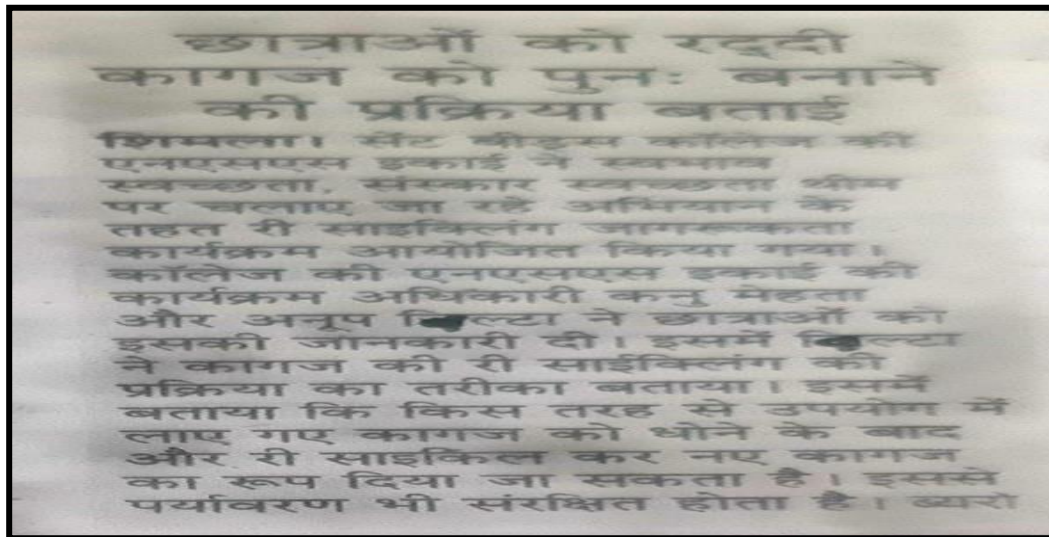 छात्राओं को रद्दी
कागज को पुनः बनाने
की प्रक्रिया बताई
शिमला। सेंट बीड्स कॉलेज की
एनएसएस इकाई ने स्वभाव
स्वच्छता, संस्कार स्वच्छता थीम
पर चलाए जा रहे अभियान के
तहत री साइक्लिंग जागरूकता
कार्यक्रम आयोजित किया गया।
कॉलेज की एनएसएस इकाई की
कार्यक्रम अधिकारी कनु मेहता
और अनूप ने छात्राओं को
इसकी जानकारी दी। इसमें
ने कागज की री साईक्लिंग की
प्रक्रिया का तरीका बताया। इसमें
बताया कि किस तरह से उपयोग में
लाए गए कागज को धोने के बाद
और री साइकिल कर नए कागज
का रूप दिया जा सकता है। इससे
पर्यावरण भी संरक्षित होता है। ब्यूरो